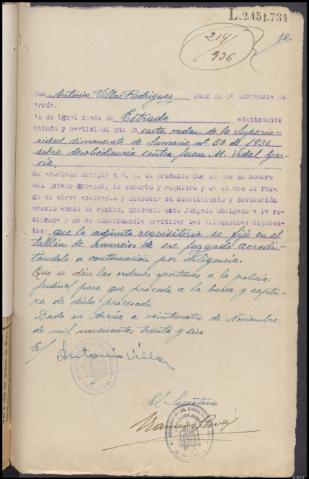 L.2451.734
214/
936
Don Antonio Villa Rodriguez Juez de 1ª Instancia de
Al de igual clase de Estrada atentamente
saludo y participo: que en carta orden de la Superio
ridad dimanante de Sumario nº 50 de 1936
sobre desobediencia contra Juan M. Vidal Gar
cía
he acordado dirigir a V. S. el presente por el que en nombre
del Estado Español, le exhorto y requiero y en el mio le rue
go se sirva aceptarlo y disponer su cumplimiento y devolución
previo acuse de recibo, quedando este Juzgado obligado a la re
ciproca y se practicarán las diligencias siguien
tes: que la adjunta requisitoria se fije en el
tablón de anuncios de ese juzgado acredi-
tándolo a continuación por diligencia.
Que se dén las ordenes oportunas a la policía
judicial para que proceda a la busca y captu
ra de dicho procesado
Dado en a veintisiete de Noviembre
de mil novecientos treinta y seis
E/ Antonio Villa
El Secretario